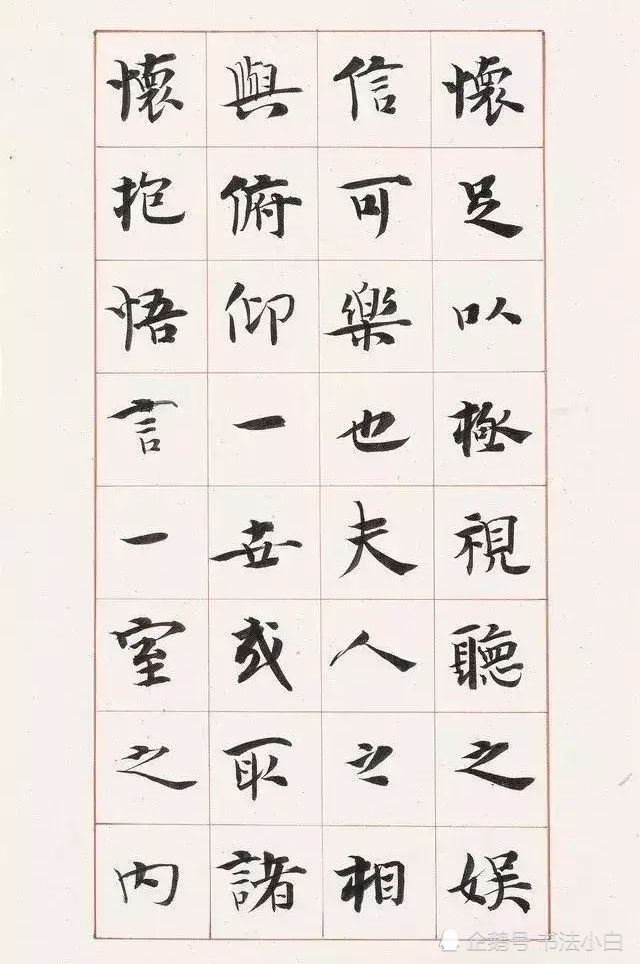 懷足以極視聽之娱
信可樂也夫人之相
與俯仰一世或取諸
懷抱悟言一室之内
企鹅号 书法小白